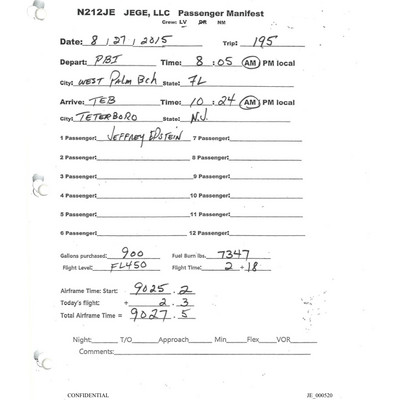 N212JE JEGE, LLC Passenger Manifest
Crew: LV DR NM
Date: 8 / 27 / 2015 Trip: 195
Depart: PBI Time: 8 : 05 AM PM local
City: WEST PALM BCH State: FL
Arrive: TEB Time: 10 : 24 AM PM local
City: TETERBORO State: N.J.
1 Passenger: JEFFREY EPSTEIN 7 Passenger:
2 Passenger: 8 Passenger:
3 Passenger: 9 Passenger:
4 Passenger: 10 Passenger:
5 Passenger: 11 Passenger:
6 Passenger: 12 Passenger:
Gallons purchased: 900 Fuel Burn lbs. 7347
Flight Level: FL450 Flight Time: 2 + 18
Airframe Time: Start: 9025 . 2
Today's flight: + 2 . 3
Total Airframe Time = 9027 . 5
Night: T/O Approach Min Flex VOR
Comments:
CONFIDENTIAL JE_000520